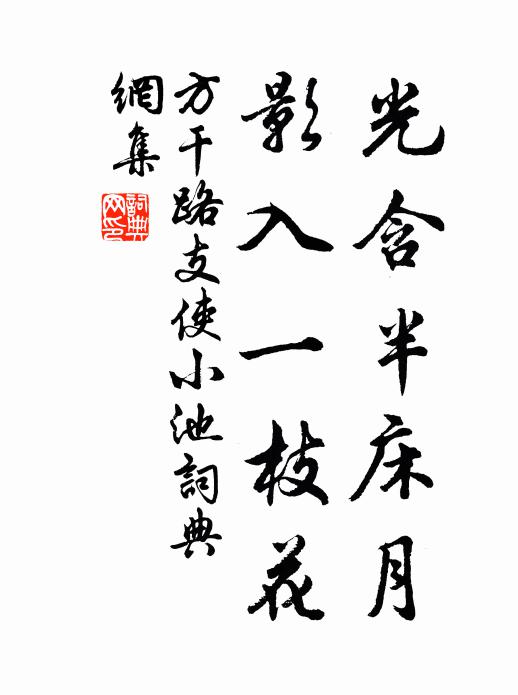 光含半床月
影入一枝花
方干路支使小池詞典
網集
詞典网印